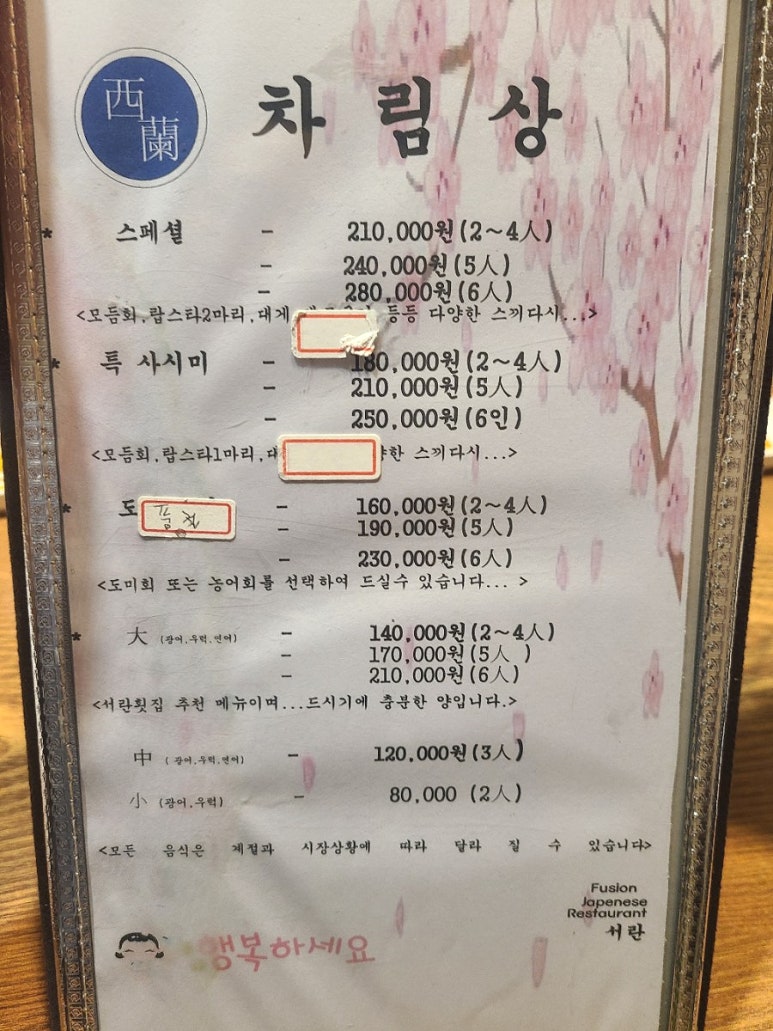 西蘭
차림상
* 스페셜 - 210,000원(2~4人)
- 240,000원(5人)
- 280,000원(6人)
<모듬회,랍스타2마리,대게 등등 다양한 스끼다시...>
* 특 사시미 - 180,000원(2~4人)
- 210,000원(5人)
- 250,000원(6인)
<모듬회,랍스타1마리,대 한 스끼다시...>
* 도 - 160,000원(2~4人)
- 190,000원(5人)
- 230,000원(6人)
<도미회 또는 농어회를 선택하여 드실수 있습니다... >
* 大 (광어,우럭,연어) - 140,000원(2~4人)
- 170,000원(5人 )
- 210,000원(6人)
<서란횟집 추천 메뉴이며...드시기에 충분한 양입니다.>
中 ( 광어,우럭,연어) - 120,000원(3人)
小 (광어,우럭) - 80,000 (2人)
<모든 음식은 계절과 시장상황에 따라 달라 질 수 있습니다>
Fusion
Japenese
Restaurant
서란
행복하세요